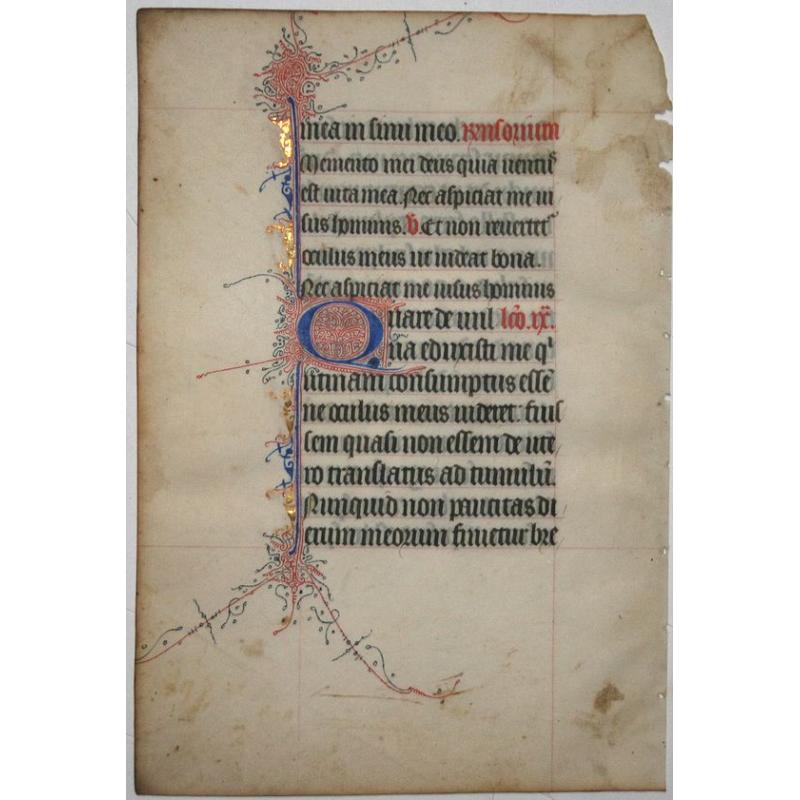 mea in sinu meo. Responsorium
Memento mei deus quia ventus
est vita mea. Nec aspiciat me vi
sus hominis. V. Et non revertet
oculus meus ut videat bona.
Nec aspiciat me visus hominis
Quare de vul lco. ix.
va eduxisti me q
utinam consumptus esse
ne oculus meus videret. fuis
sem quasi non essem de ute
ro translatus ad tumulu.
Nunquid non paucitas di
erum meorum finietur bre